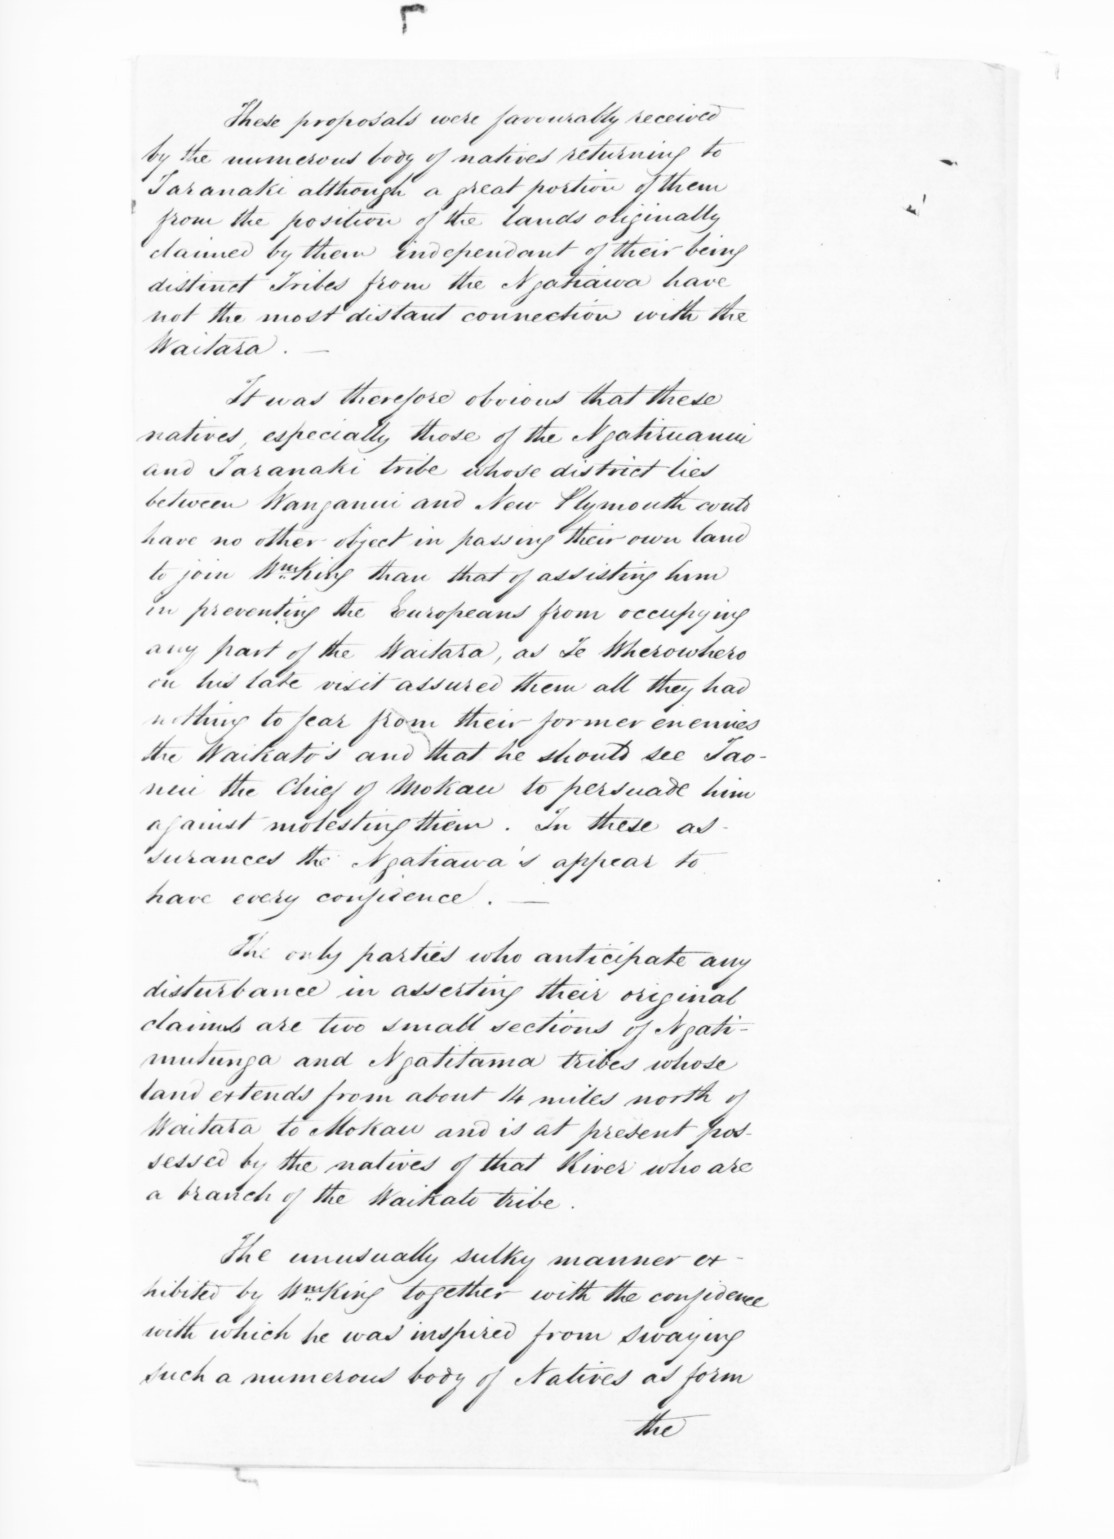 These proposals were favourably received
by the numerous body of natives returning to
Taranaki although a great portion of them
from the position of the lands originally
claimed by them independant of their being
distinct Tribes from the Ngatiawa have
not the most distant connection with the
Waitara. —
It was therefore obvious that these
natives, especially those of the Ngatiruanui
and Taranaki tribe whose district lies
between Wanganui and New Plymouth could
have no other object in passing their own land
to join Wm King than that of assisting him
in preventing the Europeans from occupying
any part of the Waitara, as Te Wherowhero
on his late visit assured them all they had
nothing to fear from their former enemies
the Waikato's and that he should see Tao-
nui the Chief of Mokau to persuade him
against molesting them. In these as-
surances the Ngatiawa's appear to
have every confidence. —
The only parties who anticipate any
disturbance in asserting their original
claims are two small sections of Ngati-
mutunga and Ngatitama tribes whose
land extends from about 14 miles north of
Waitara to Mokau and is at present pos-
sessed by the natives of that River who are
a branch of the Waikato tribe.
The unusually sulky manner ex-
hibited by Wm King together with the confidence
with which he was inspired from swaying
such a numerous body of Natives as form
the